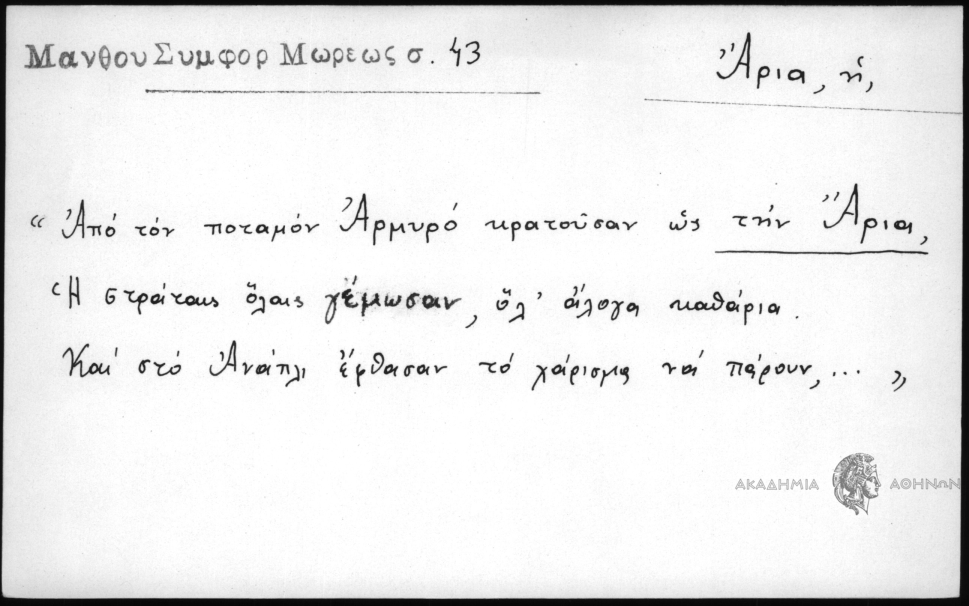 Μανθου Συμφορ Μωρεως σ. 43
Ἄρια, ἡ,
“ Ἀπό τόν ποταμόν Ἀρμυρό κρατοῦσαν ὡς τήν Ἄρια,
Ἡ στράταις ὅλαις γέμωσαν, ὅλ' ἄλογα καθάρια.
Καί στό Ἀνάπλι ἔφθασαν τό χάρισμα νά πάρουν, ... „
ΑΚΑΔΗΜΙΑ ΑΘΗΝΩΝ